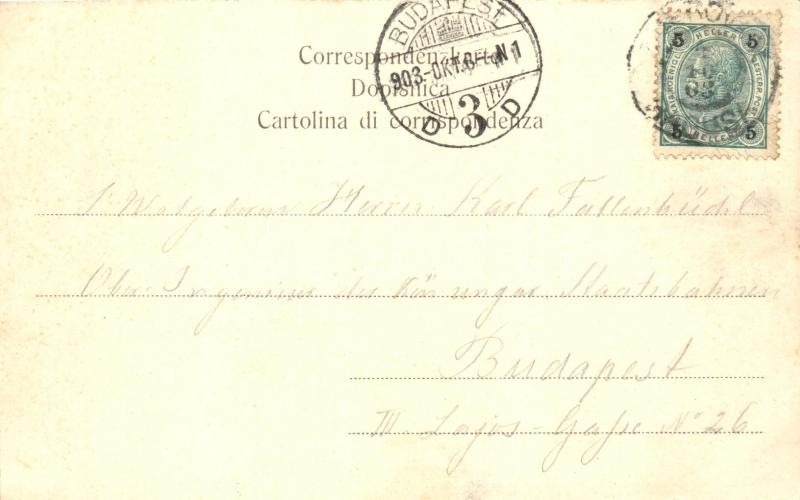 Correspondenzkarte
Dopisnica
Cartolina di corrispondenza
BUDAPEST
903-OKT.6- N 1
D 3 D
5 HELLER 5
5 HELLER 5
S Wolgeboren Herrn Karl Fallenbüchl
Ober-Ingenieur der kön ungar Staatsbahnen
Budapest
III. Lajos-Gasse No 26